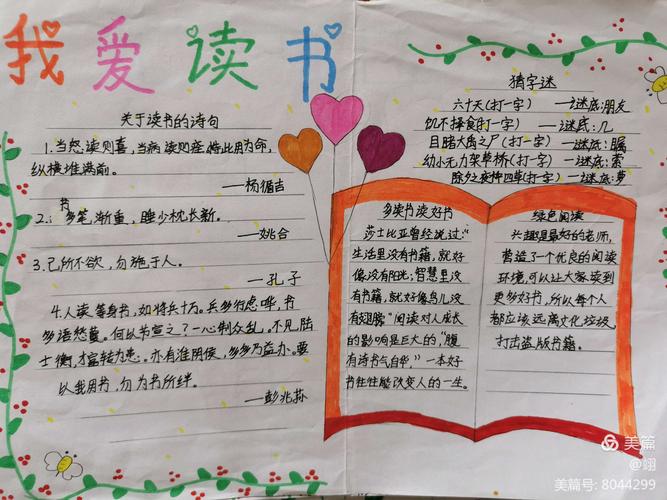 我爱读书
关于读书的诗句
1.当怒读则喜,当病读则痊,恃此用为命,
纵横堆满前。
——杨循吉
2.:书多笔渐重,睡少枕长新。
——姚合
3.己所不欲,勿施于人。
——孔子
4.人读等身书,如将兵十万。兵多行虑哗,书
多语愁蔓。何以节宣之?一心制众乱,不见陆
士衡,才富转为患。亦有淮阴侯,多多乃益办。要
以我用书,勿为书所绊。
——彭兆荪
猜字迷
六十天(打一字) —谜底:朋友
饥不择食(打一字) —谜底:几
目睹大禹之尸(打一字) —谜底:瞩
幼小无力架草桥(打一字) —谜底:索
除夕之夜种四草(打一字) —谜底:萝
多读书读好书
莎士比亚曾经说过:“
生活里没有书籍,就好
像没有阳光;智慧里没
有书籍,就好像鸟儿没
有翅膀”阅读对人成长
的影响是巨大的“腹
有诗书气自华,”一本好
书往往能改变人的一生。
绿色阅读
兴趣是最好的老师,
营造了个优良的阅读
环境,可以让大家读到
更多好书,所以每个人
都应该远离文化垃圾,
打击盗版书籍。
美篇
@翊
美篇号: 8044299